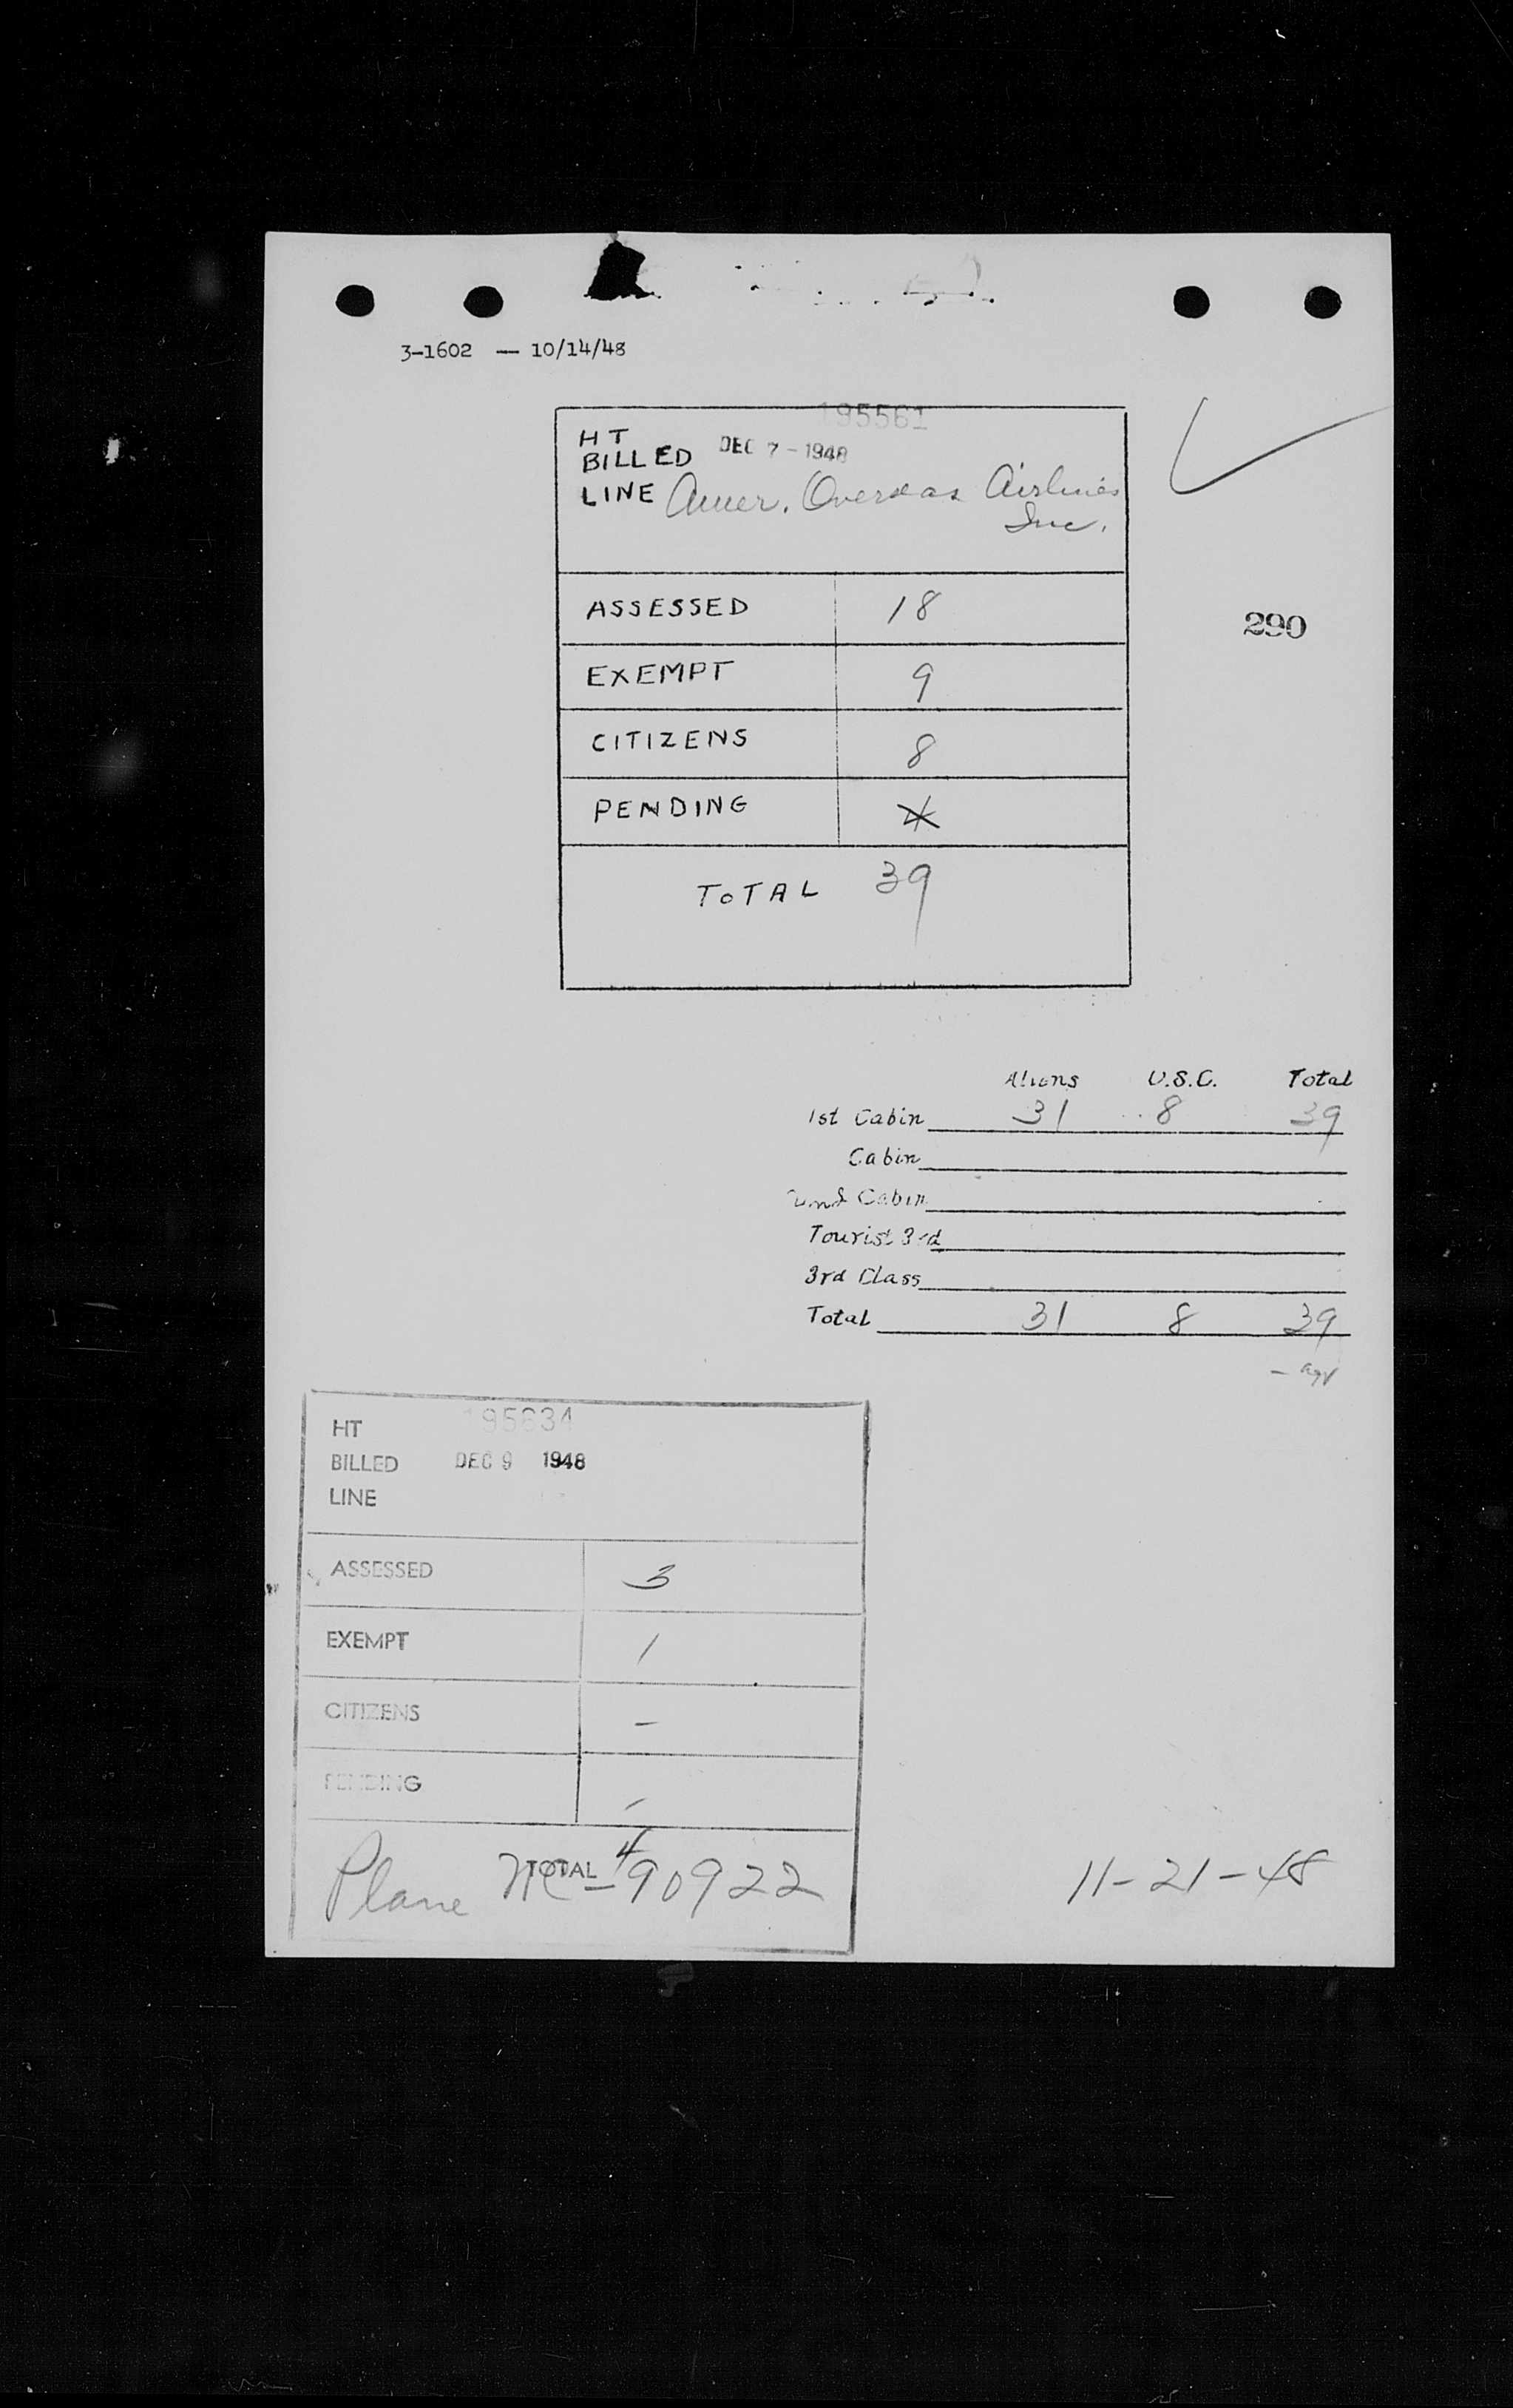 3-1602 — 10/14/48
195561
HT
BILLED DEC 7 - 1948
LINE Amer. Overseas Airlines
Inc.
ASSESSED 18
290
EXEMPT 9
CITIZENS 8
PENDING 4
TOTAL 39
Aliens U.S.C. Total
1st Cabin 31 8 39
Cabin
2nd Cabin
Tourist 3rd
3rd Class
Total 31 8 39
HT 195634
BILLED DEC 9 1948
LINE
ASSESSED 3
EXEMPT 1
CITIZENS —
PENDING -
TOTAL 4
Plane NC-90922
11-21-48